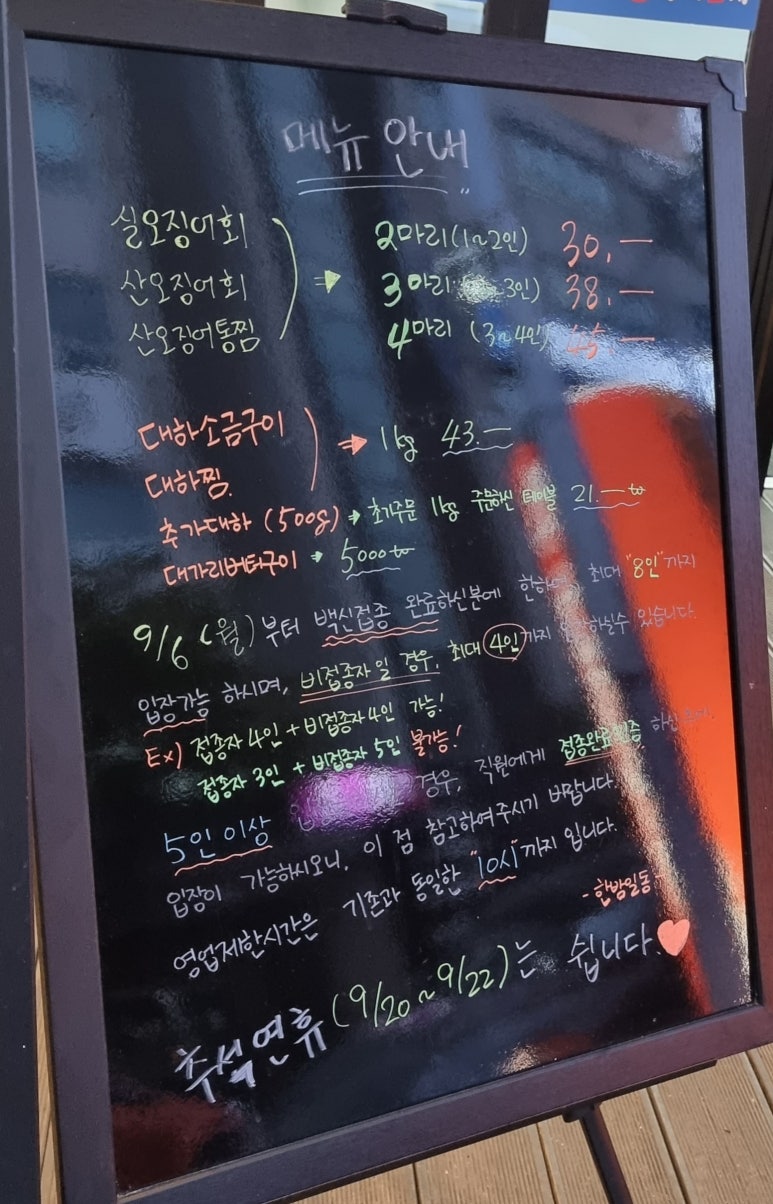 메뉴 안내
실오징어회
산오징어회
산오징어통찜
⇒ 2마리 (1~2인) 30.—
3마리 3인) 38.—
4마리 (3~4인) 45.—
대하소금구이
대하찜.
⇒ 1kg 43.—
추가대하 (500g) → 초기주문 1kg 주문하신 테이블 21.—₩
대가리버터구이 → 5000₩
9/6 (월)부터 백신접종 완료하신분에 한하여, 최대 "8인"까지
입장가능 하시며, 비접종자일 경우, 최대 4인까지 하실수 있습니다.
Ex) 접종자 4인 + 비접종자 4인 가능!
접종자 3인 + 비접종자 5인 불가능!
5인 이상 경우, 직원에게 접종완료인증 하신
입장이 가능하시오니, 이 점 참고하여주시기 바랍니다.
영업제한시간은 기존과 동일한 "10시"까지 입니다.
- 한방일동 -
추석연휴 (9/20~9/22)는 쉽니다.♥